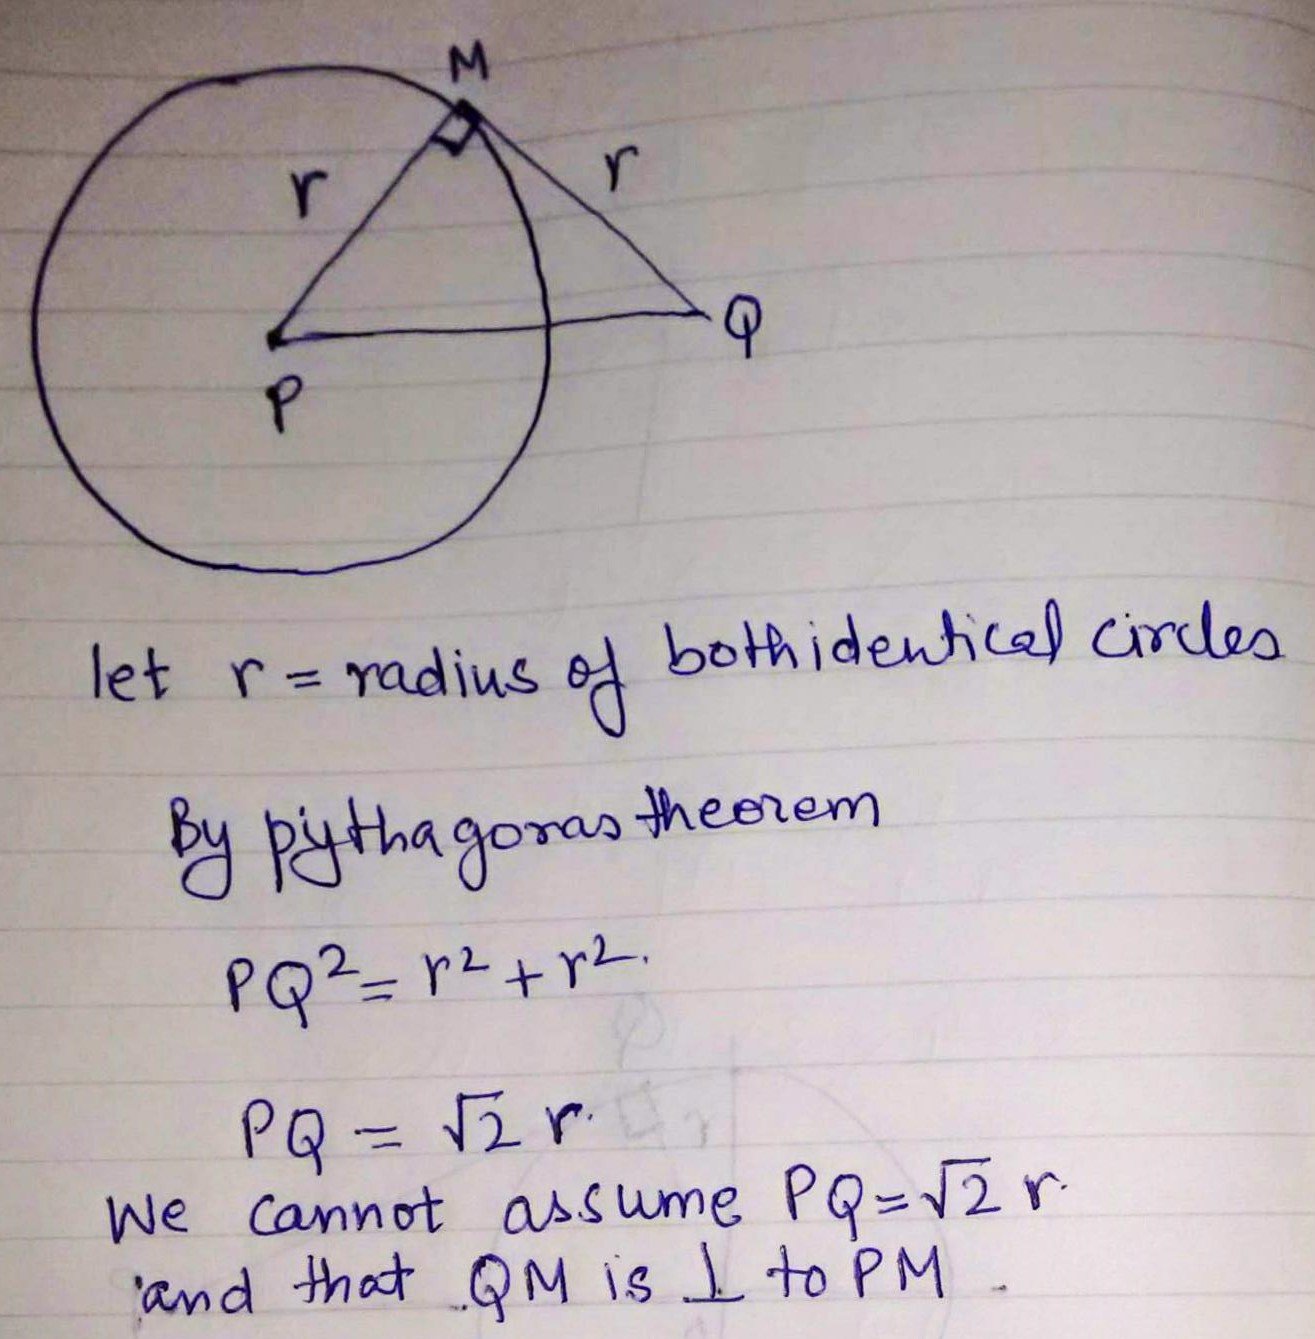 M
r
r
Q
P
let r = radius of both identical circles
By pythagoras theorem
PQ² = r² + r².
PQ = √2 r.
We cannot assume PQ = √2 r.
and that QM is ⊥ to PM.